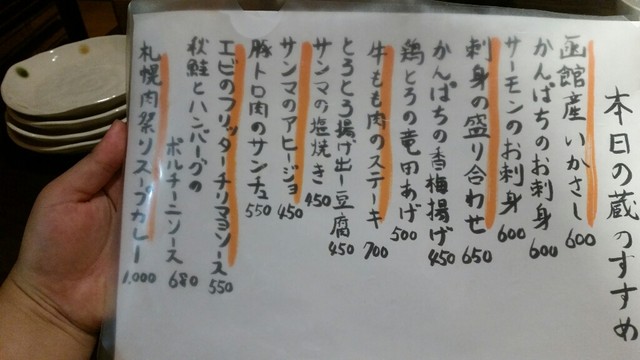 本日の蔵のすすめ
函館産いかさし 600
かんぱちのお刺身 600
サーモンのお刺身 600
刺身の盛り合わせ 650
かんぱちの香梅揚げ 450
鶏とろの竜田あげ 500
牛もも肉のステーキ 700
とろとろ揚げ出し豆腐 450
サンマの塩焼き 450
サンマのアヒージョ 450
豚トロ肉のサンチュ 550
エビのフリッターチリマヨソース 550
秋鮭とハンバーグの
ポルチーニソース 680
札幌肉祭りスープカレー 1,000